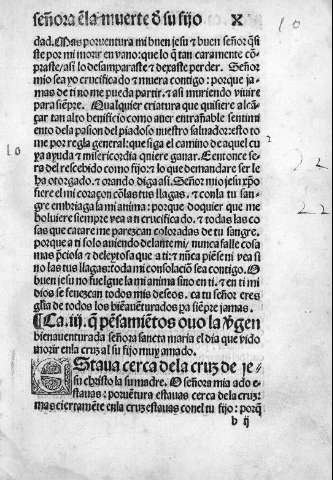 señora ẽla muerte õ su fijo X
10
dad. Mas por ventura mi buen jesu ⁊ buen señor q̃si
ste por mi morir en vano: que lo q̃ tan caramente cõ
praste / assi lo desamparaste ⁊ dexaste perder. Señor
mio sea yo crucificado ⁊ muera contigo: porque ja-
mas de ti no me pueda partir. ⁊ assi muriendo viuire
para siẽpre. Qualquier criatura que quisiere alcã-
çar tan alto beneficio como auer entrañable sentimi
ento dela passion del piadoso nuestro saluador: esto to
me por regla general: que siga el camino de aquel cu
ya ayuda ⁊ misericordia quiere ganar. E entonce se-
ra del rescebido como fijo: ⁊ lo que demandare ser le
ha otorgado. ⁊ orando diga assi. Señor mio jesu xp̃o
fiere el mi coraçon cõlas tus llagas. ⁊ conla tu san-
gre embriaga la mi anima: porque doquier que me
boluiere siempre vea a ti crucificado. ⁊ todas las co
sas que catare me parezcan coloradas de tu sangre.
porque a ti solo auiendo delante mi / nunca falle cosa
mas p̃ciosa ⁊ deleytosa que a ti: ⁊ nũca piẽse ni vea si
no las tus llagas: toda mi consolaciõ sea contigo. O
buen jesu no fuelgue la mi anima sino en ti. ⁊ en ti mi
dios se fenezcan todos mis desseos. ca tu señor eres
gl̃ia de todos los biẽauẽturados ya siẽpre jamas.
¶ Ca. iij. q̃ pẽsamiẽtos ouo la v̓gen
bienauenturada señora sancta maria el dia que vido
morir enla cruz al su fijo muy amado.
EStaua cerca dela cruz de je-
su christo la su madre. O señora mia ado e-
stauas: por vẽtura estauas cerca dela cruz:
mas ciertamẽte enla cruz estauas conel tu fijo: porq̃
b ij
10
22